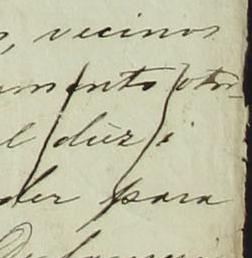 , vecinos
mento otor-
l diez i
der para